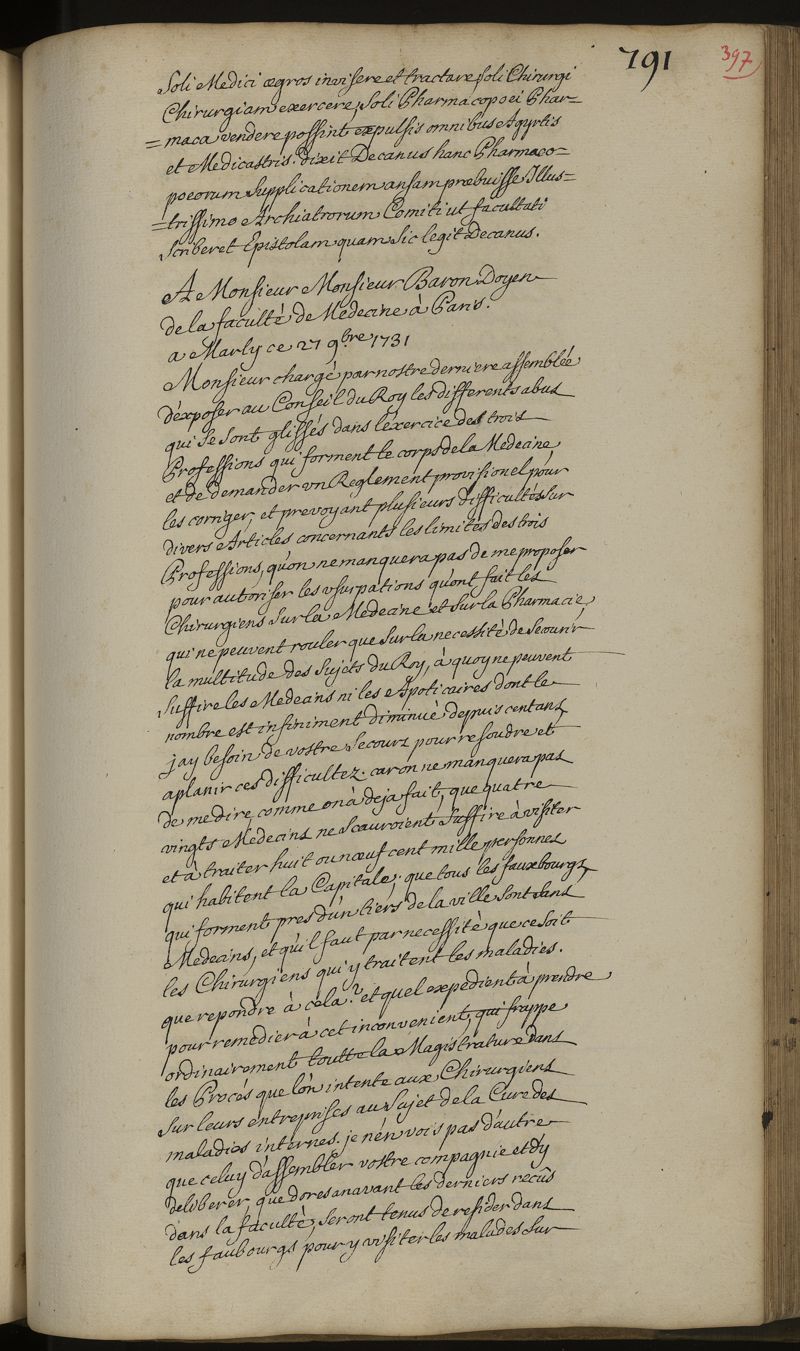 791
397
Soli Medici ægros invisere et tractare, soli Chirurgi
Chirurgiam exercere, Soli Pharmacopoei Phar=
=maca vendere possint expulsis omnibus Agyrtis
et Medicastris. dixit Decanus hanc Pharmaco=
poeorum Supplicationem ansam præbuisse Illus=
=trissimo Archiatrorum Comiti ut facultati
Scriberet Epistolam quam Sic legit Decanus.
A Monsieur Monsieur Baron Doyen
de la faculté de Medecine à Paris.
a Marly ce 27 9.bre 1731
Monsieur chargé par nostre derniere assemblée
d'éxposer au Conseil du Roy les differents abus
qui se sont glissés dans lexercice des trois
Professions qui forment le corps de la Medecine
et de demander vn Reglement provisionel pour
les corriger, et prevoyant plusieurs difficultés sur
divers Articles concernants les limites des trois
Professions, qu'on ne manquera pas de me proposer
pour autoriser les vsurpations qu'ont fait les
Chirurgiens sur la Medecine et sur la Pharmacie,
qui ne peuvent rouler que sur la necessité de Secourir
la multitude des Sujets du Roy, à quoy ne peuvent
suffire les Medecins ni les Apoticaires dont le
nombre est infiniment diminué depuis cent ans,
jay besoin de vostre Secours pour resoudre et
aplanir ces difficultez. car on ne manquera pas
de me dire, comme on à deja fait, que quatre
vingts Medecins ne Scauroient Suffire à visiter
et à traiter huit ou nœuf cent mille personnes
qui habitent la Capitale, que tous les fauxbourgs,
qui forment pres d'ùn tiers de la ville sont sans
Medecins, et qu'il faut par necessité que ce soit
les Chirurgiens qui y traitent les maladies.
que repondre à cela? et quel expedient à prendre
pour remedier à cet inconvenient, qui frappe
ordinairement toutte la Magistrature dans
les Procés que lón intente aux Chirurgiens
sur leurs entreprises au Sujet de la Cure des
maladies internes. je n'en vois pas d'autre
que celuy d'assembler vostre compagnie et d'y
deliberer, que doresanavant les derniers recûs
dans la faculté, seront tenus de resider dans
les faubourgs pour y visiter les malades sur